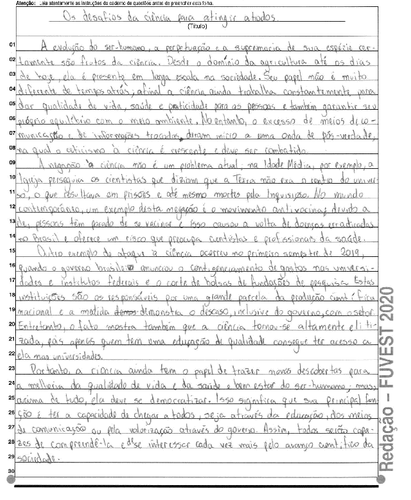 Atenção: Leia atentamente as instruções do caderno de questões antes de preencher esta folha.
Os desafios da ciência para atingir a todos
(Título)
01 A evolução do ser-humano, a perpetuação e a supremacia de sua espécie cer-
02 tamente são frutos da ciência. Desde o domínio da agricultura até os dias
03 de hoje, ela é presente em larga escala na sociedade. Seu papel não é muito
04 diferente de tempos atrás, afinal a ciência ainda trabalha constantemente para
05 dar qualidade de vida, saúde e praticidade para as pessoas e também garantir seu
06 próprio equilíbrio com o meio ambiente. No entanto, o excesso de meios de co-
07 municação e de informações trocadas, diram início a uma onda de pós-verdade,
08 na qual o ceticismo à ciência é crescente e deve ser combatido.
09 A negação à ciência não é um problema atual, na Idade Média, por exemplo, a
10 Igreja perseguia os cientistas que diziam que a Terra não era o centro do univer-
11 so, o que resultava em prisões e até mesmo mortes pela Inquisição. No mundo
12 contemporâneo, um exemplo desta negação é o movimento anti-vacina; devido a
13 ele, pessoas têm parado de se vacinar e isso causou a volta de doenças erradicadas
14 no Brasil e oferece um risco que preocupa cientistas e profissionais da saúde.
15 Outro exemplo do ataque à ciência ocorreu no primeiro semestre de 2019,
16 quando o governo brasileiro anunciou o contingenciamento de gastos nas universi-
17 dades e institutos federais e o corte de bolsas de fundações de pesquisa. Estas
18 instituições são os responsáveis por uma grande parcela da produção científica
19 nacional e a medida demonstra o descaso, inclusive do governo, com o setor.
20 Entretanto, o fato mostra também que a ciência tornou-se altamente eliti-
21 zada, pois apenas quem tem uma educação de qualidade consegue ter acesso a
22 ela nas universidades.
23 Portanto, a ciência ainda tem o papel de trazer novas descobertas para
24 a melhoria da qualidade de vida e da saúde e bem estar do ser-humano, mas,
25 acima de tudo, ela deve se democratizar. Isso significa que sua principal fun-
26 ção é ter a capacidade de chegar a todos, seja através da educação, dos meios
27 de comunicação ou pela valorização através do governo. Assim, todos serão capa-
28 zes de compreendê-la e se interessar cada vez mais pelo avanço científico da
29 sociedade.
30
Redação – FUVEST 2020